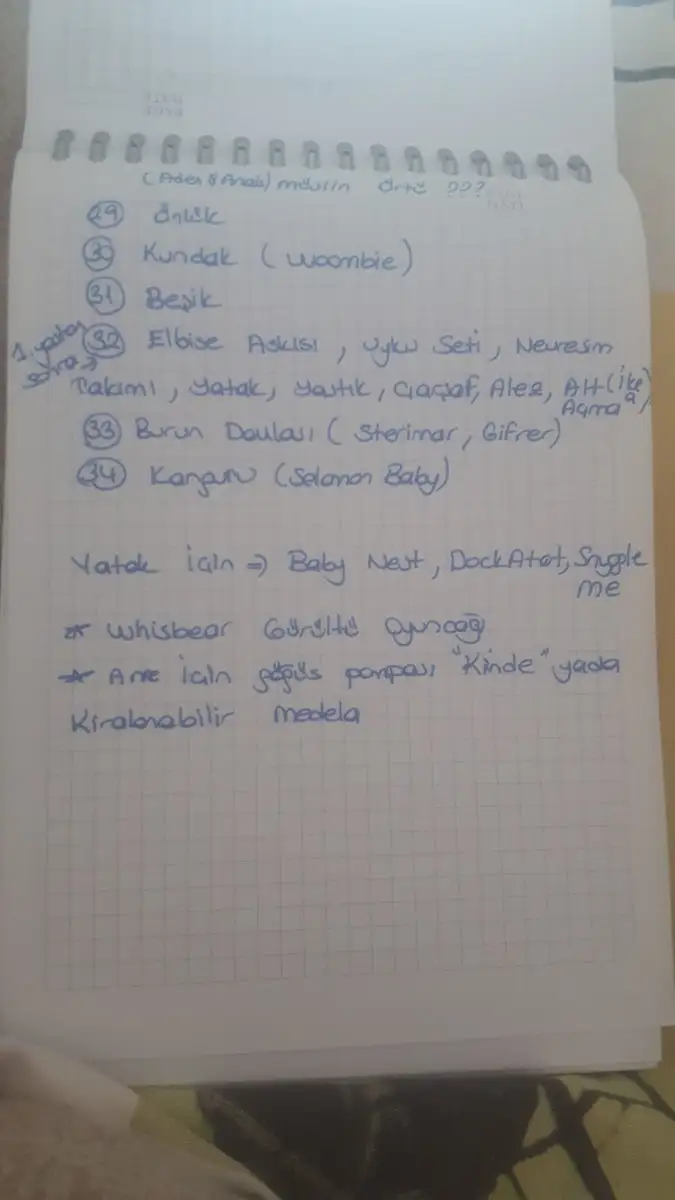 (Aden & Anais) müslin örtü ???
29 Önlük
30 Kundak (Woombie)
31 Beşik
1. yaştan sonra →
32 Elbise Askısı, Uyku Seti, Nevresim
Takımı, Yatak, Yastık, Çarşaf, Alez, Alt (İke)
Açma
33 Burun Damlası (Sterimar, Gifrer)
34 Kanguru (Selamon Baby)
Yatak için ⇒ Baby Nest, DockAtot, Snuggle
me
* Whisbear Gürültü Oyuncağı
* Anne için göğüs pompası "Kinde" yada
Kiralanabilir medela